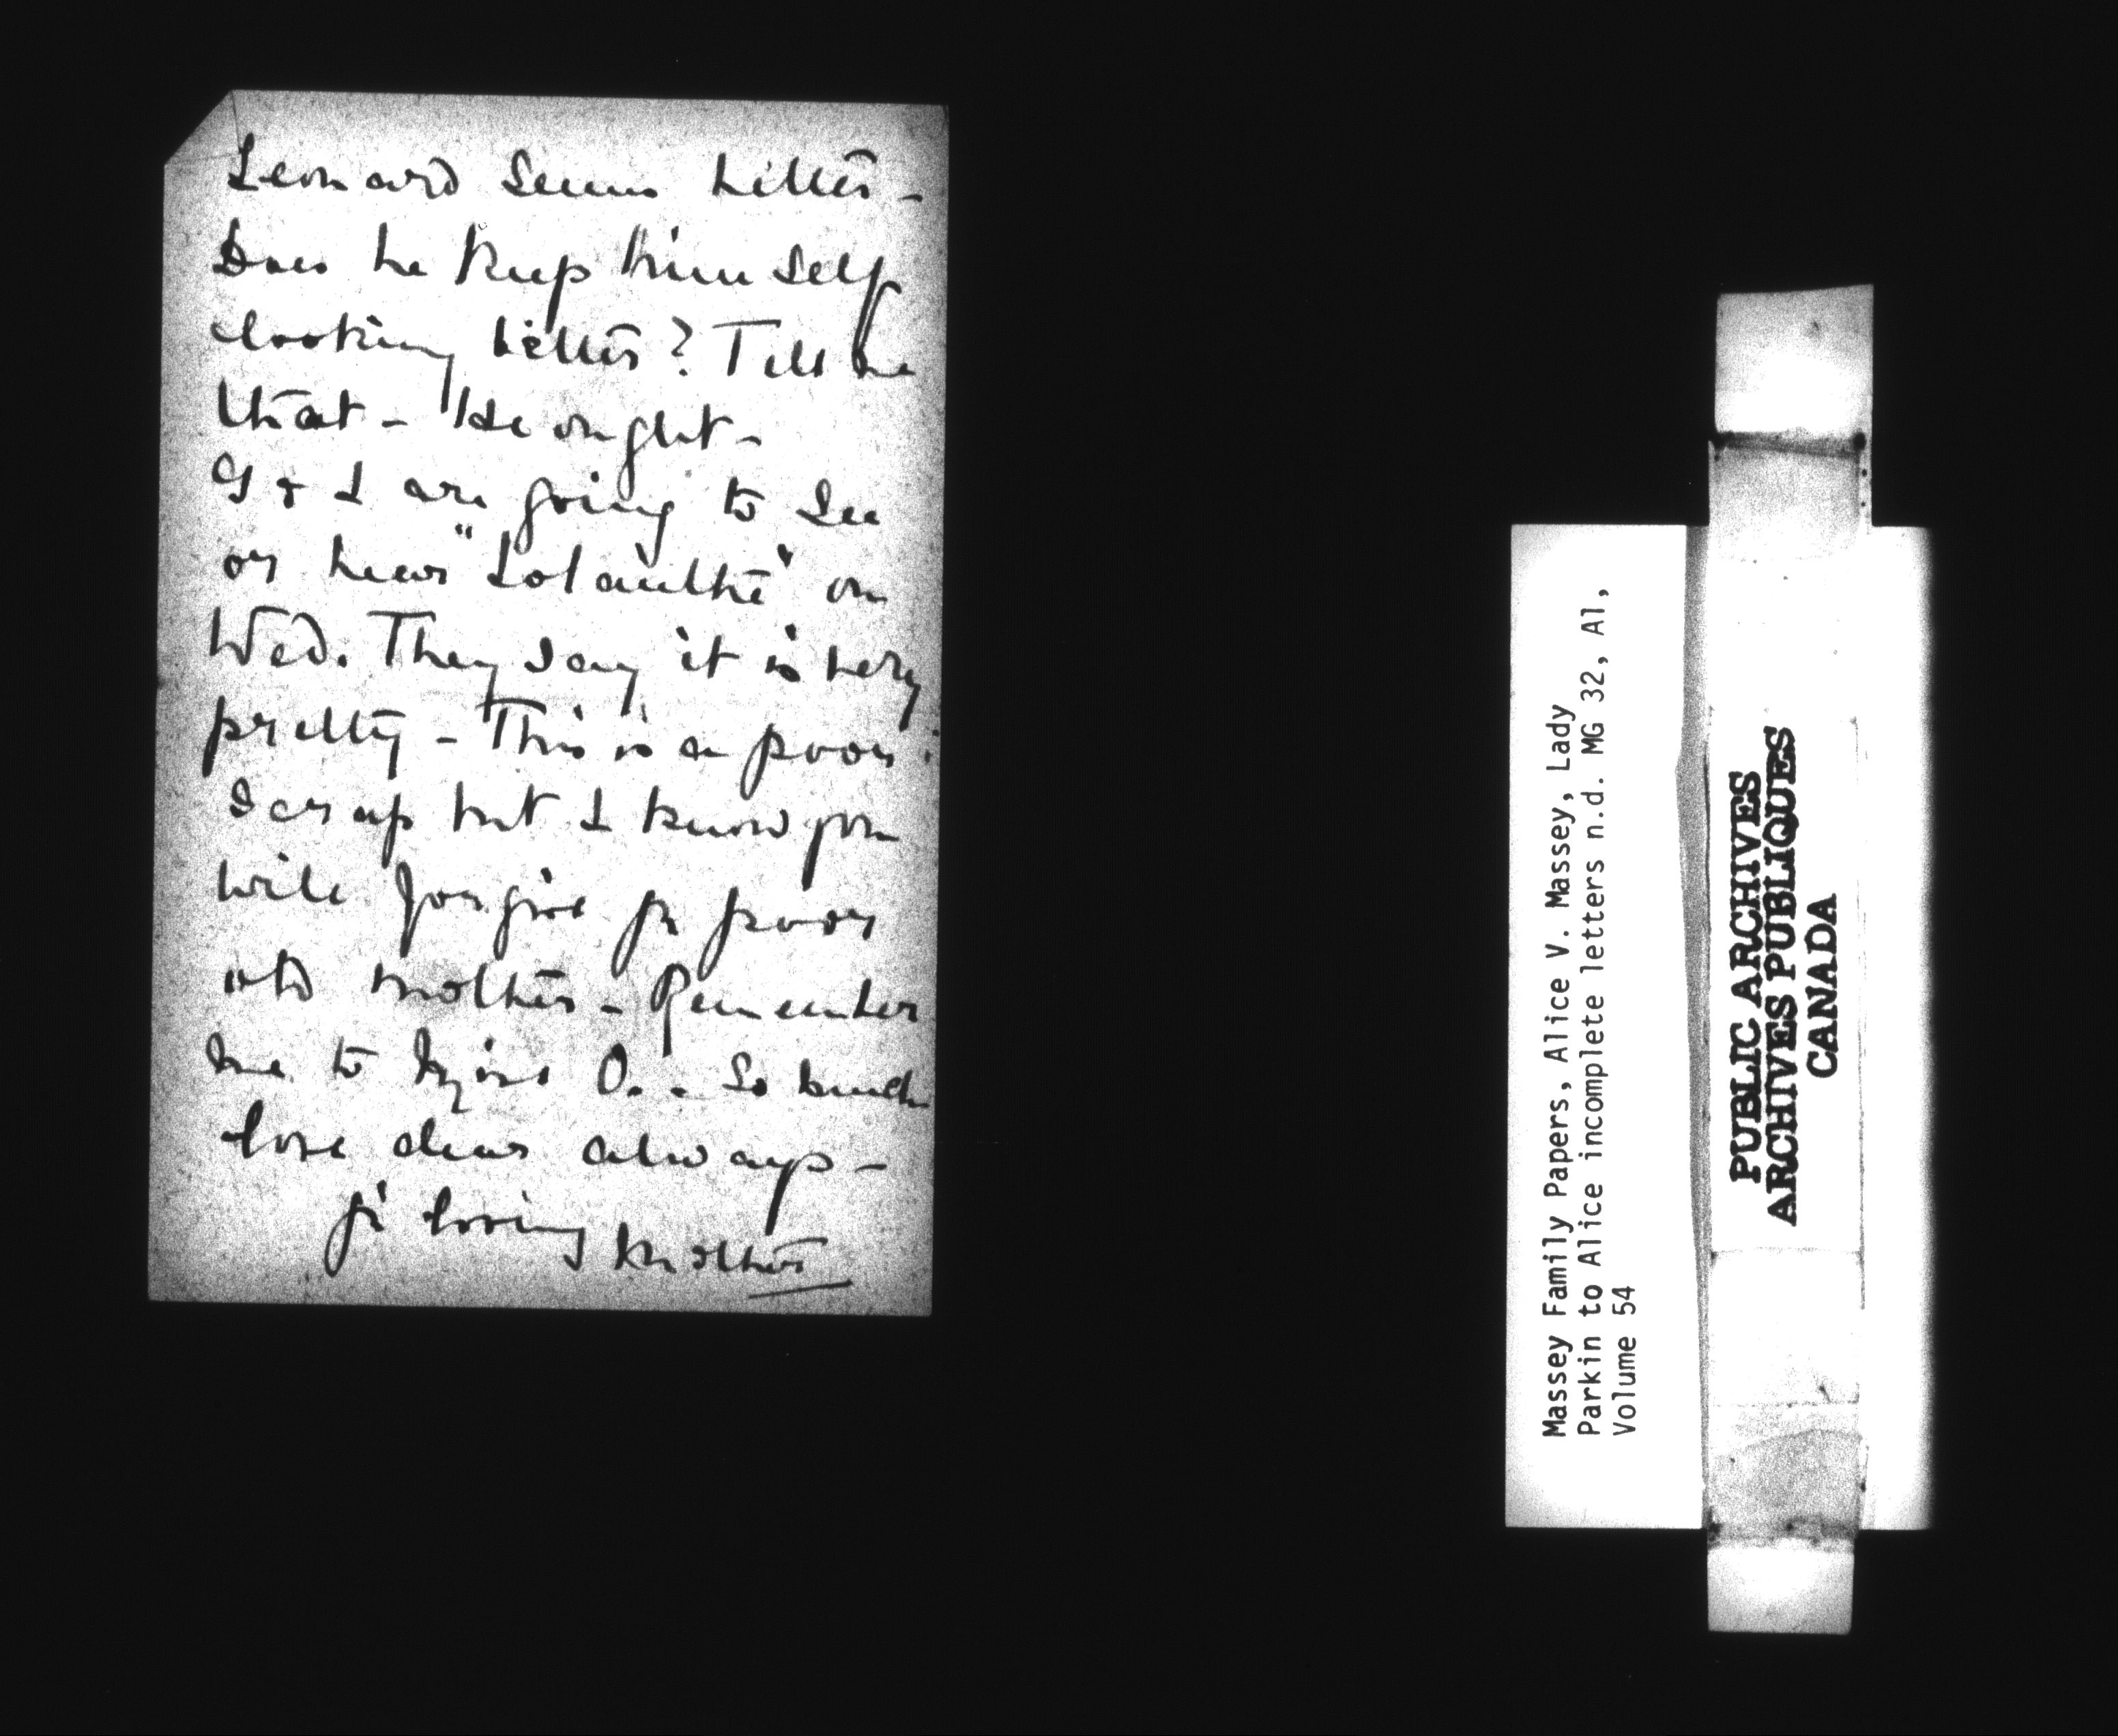 Leonard seems better -
Does he keep himself
looking better? Tell me
that - He ought -
G & I are going to see
or hear "Iolanthe" on
Wed. They say it is very
pretty - This is a poor
scrap but I know you
will forgive yr poor
old mother - Remember
me to Miss O. - So much
love dear always -
yr loving Mother
Massey Family Papers, Alice V. Massey, Lady
Parkin to Alice incomplete letters n.d. MG 32, A1,
Volume 54
PUBLIC ARCHIVES
ARCHIVES PUBLIQUES
CANADA